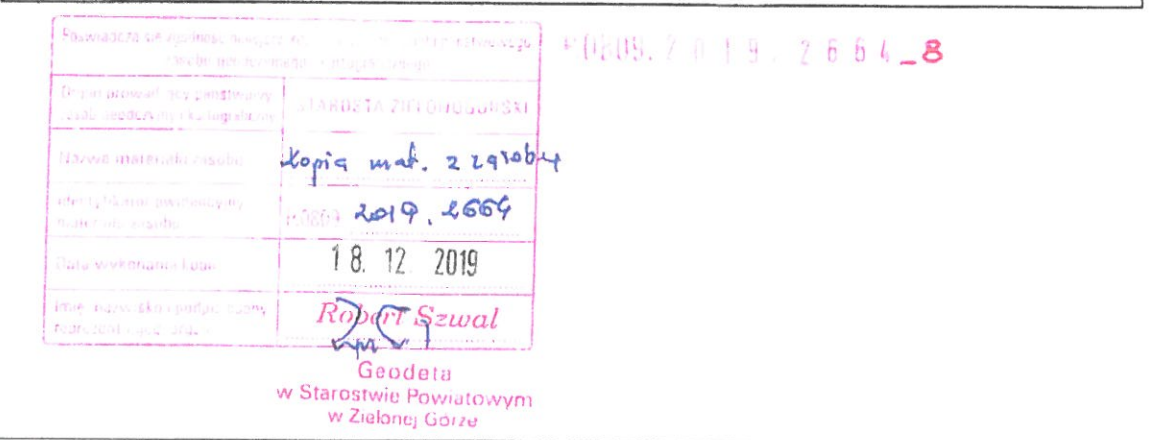 Poświadcza się zgodność niniejszej
P.0809.2019.2664_8
Organ prowadzący państwowy
zasób geodezyjny i kartograficzny
STAROSTA ZIELONOGÓRSKI
Nazwa materiału zasobu
kopia mat. z zasobu
Identyfikator ewidencyjny
materiału zasobu
P.0809 2019.2664
Data wykonania kopii
18. 12. 2019
Imię, nazwisko i podpis osoby
reprezentującej organ
Robert Szwal
Geodeta
w Starostwie Powiatowym
w Zielonej Górze